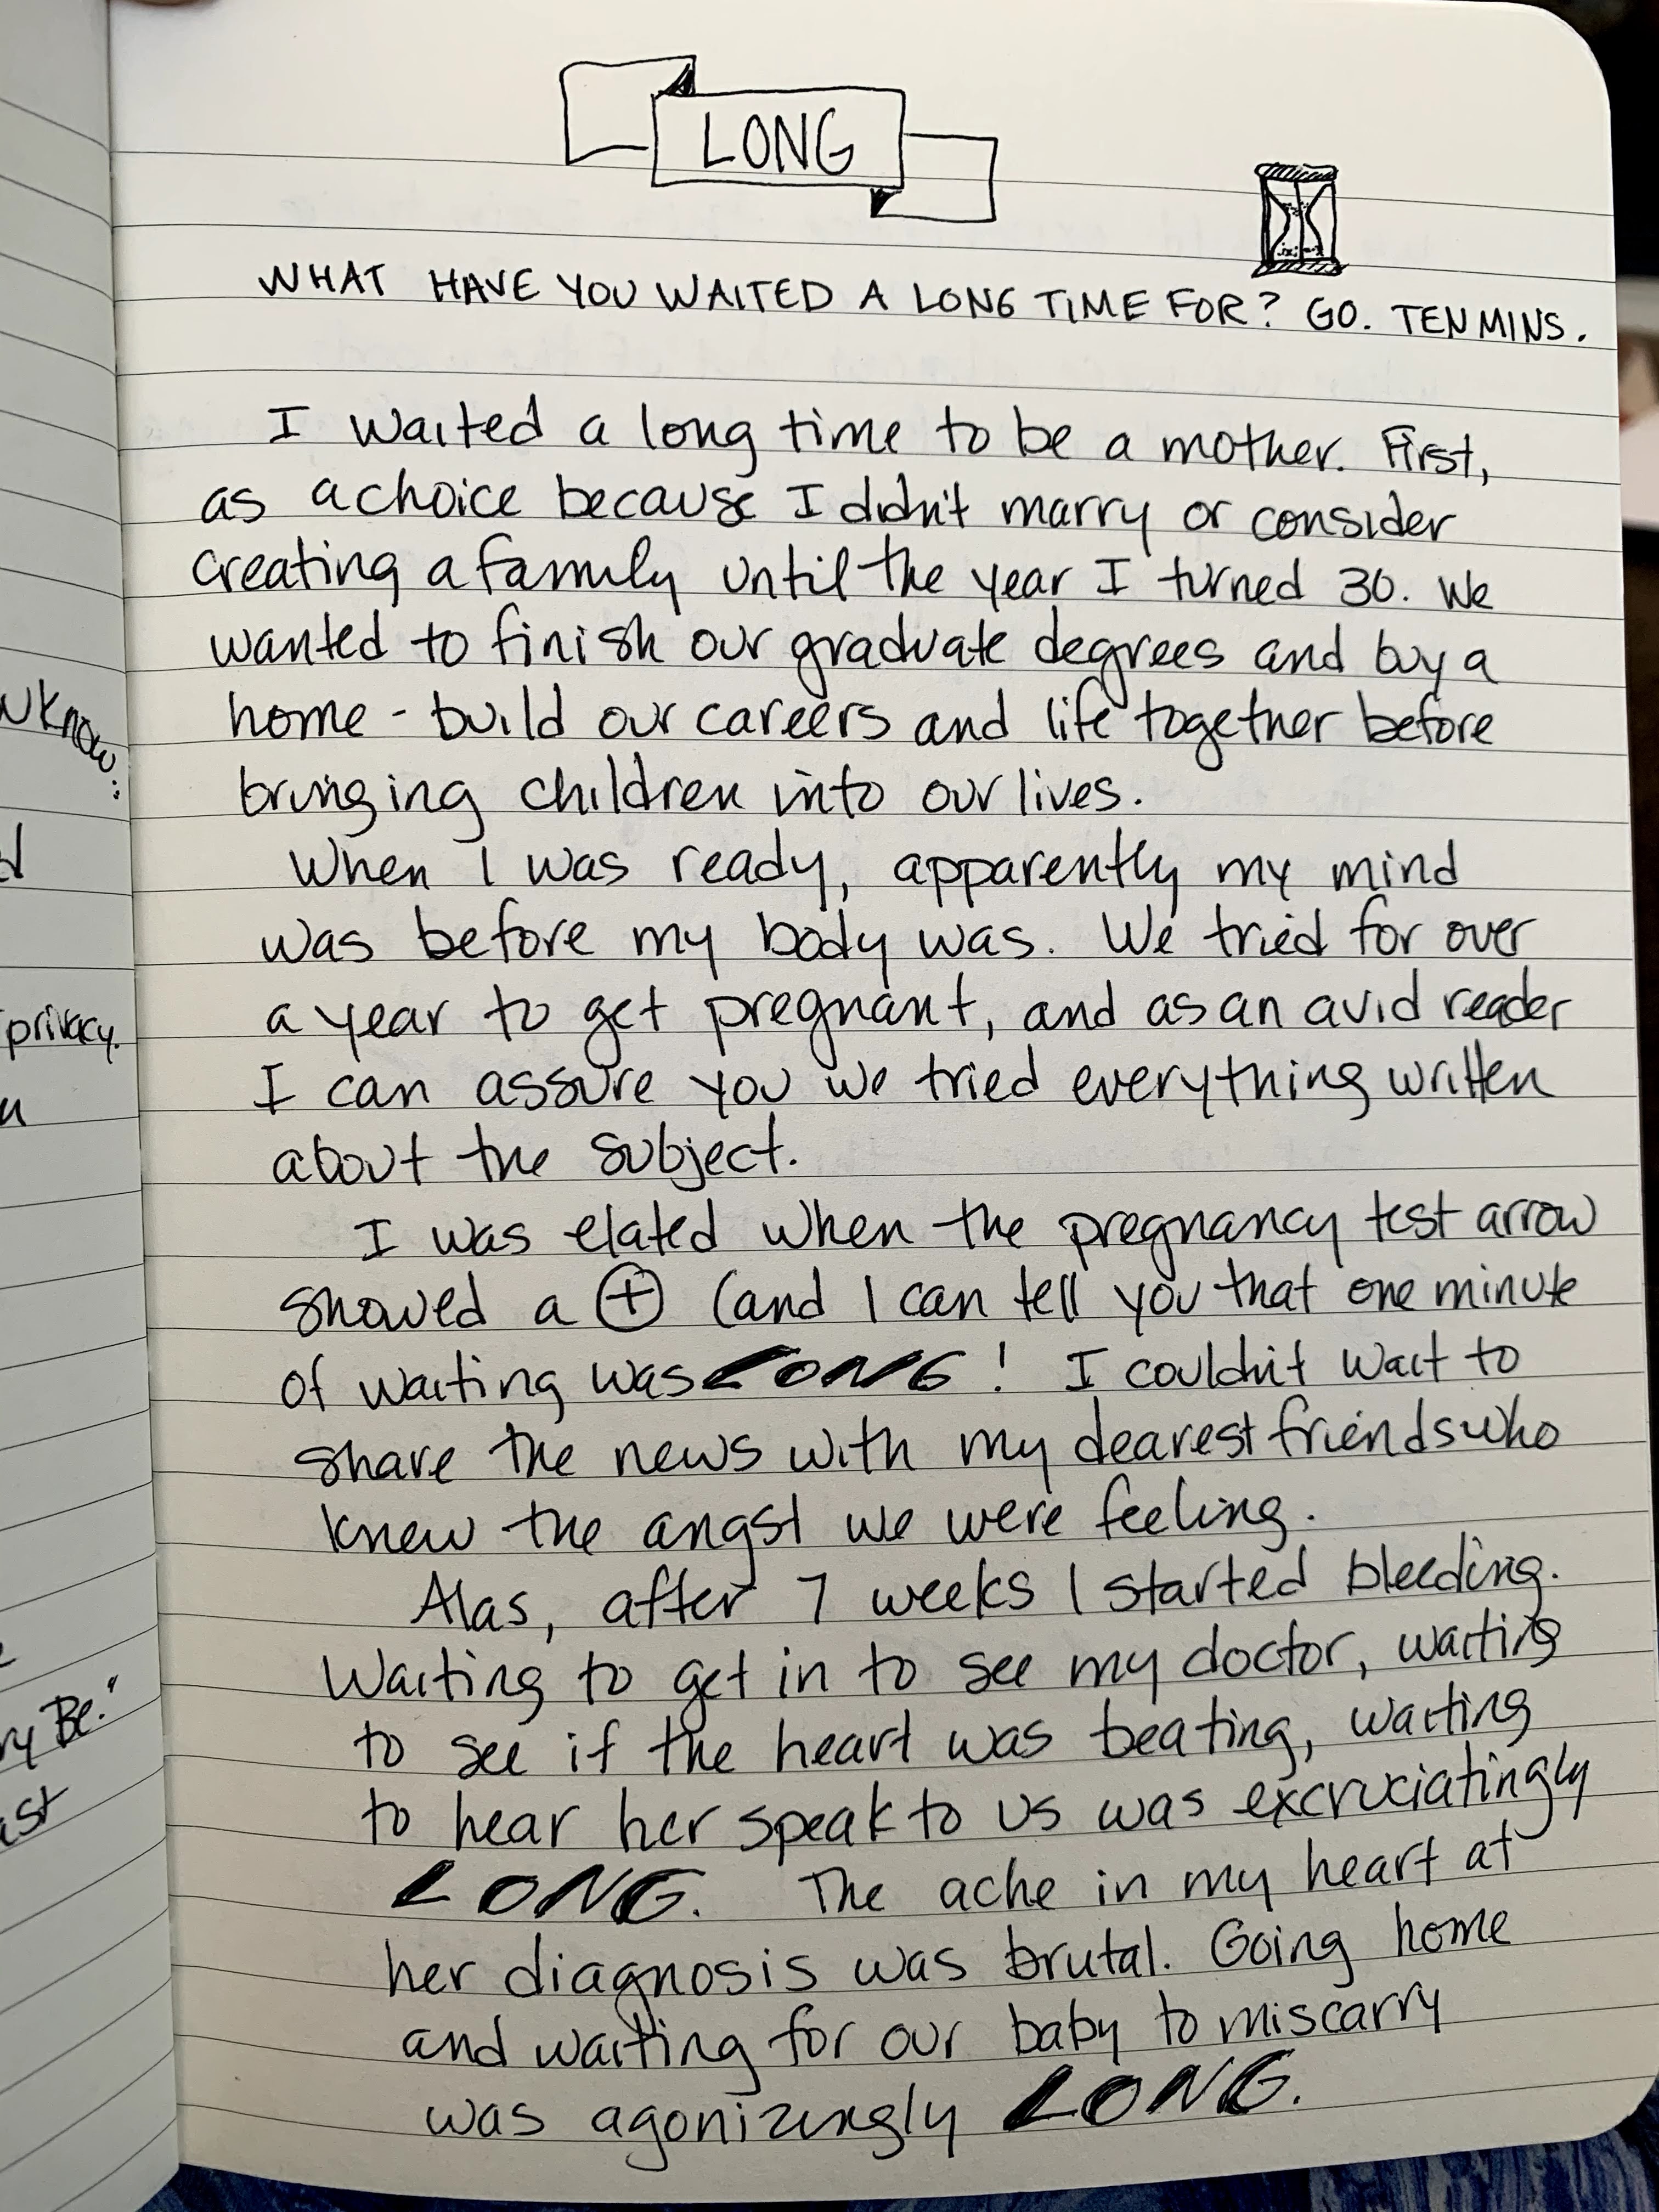 LONG
WHAT HAVE YOU WAITED A LONG TIME FOR? GO. TEN MINS.
I waited a long time to be a mother. First,
as a choice because I didn't marry or consider
creating a family until the year I turned 30. We
wanted to finish our graduate degrees and buy a
home - build our careers and life together before
bringing children into our lives.
When I was ready, apparently my mind
was before my body was. We tried for over
a year to get pregnant, and as an avid reader
I can assure you we tried everything written
about the subject.
I was elated when the pregnancy test arrow
showed a + (and I can tell you that one minute
of waiting was LONG! I couldn't wait to
share the news with my dearest friends who
knew the angst we were feeling.
Alas, after 7 weeks I started bleeding.
Waiting to get in to see my doctor, waiting
to see if the heart was beating, waiting
to hear her speak to us was excruciatingly
LONG. The ache in my heart at
her diagnosis was brutal. Going home
and waiting for our baby to miscarry
was agonizingly LONG.
know..
privacy.
Be."